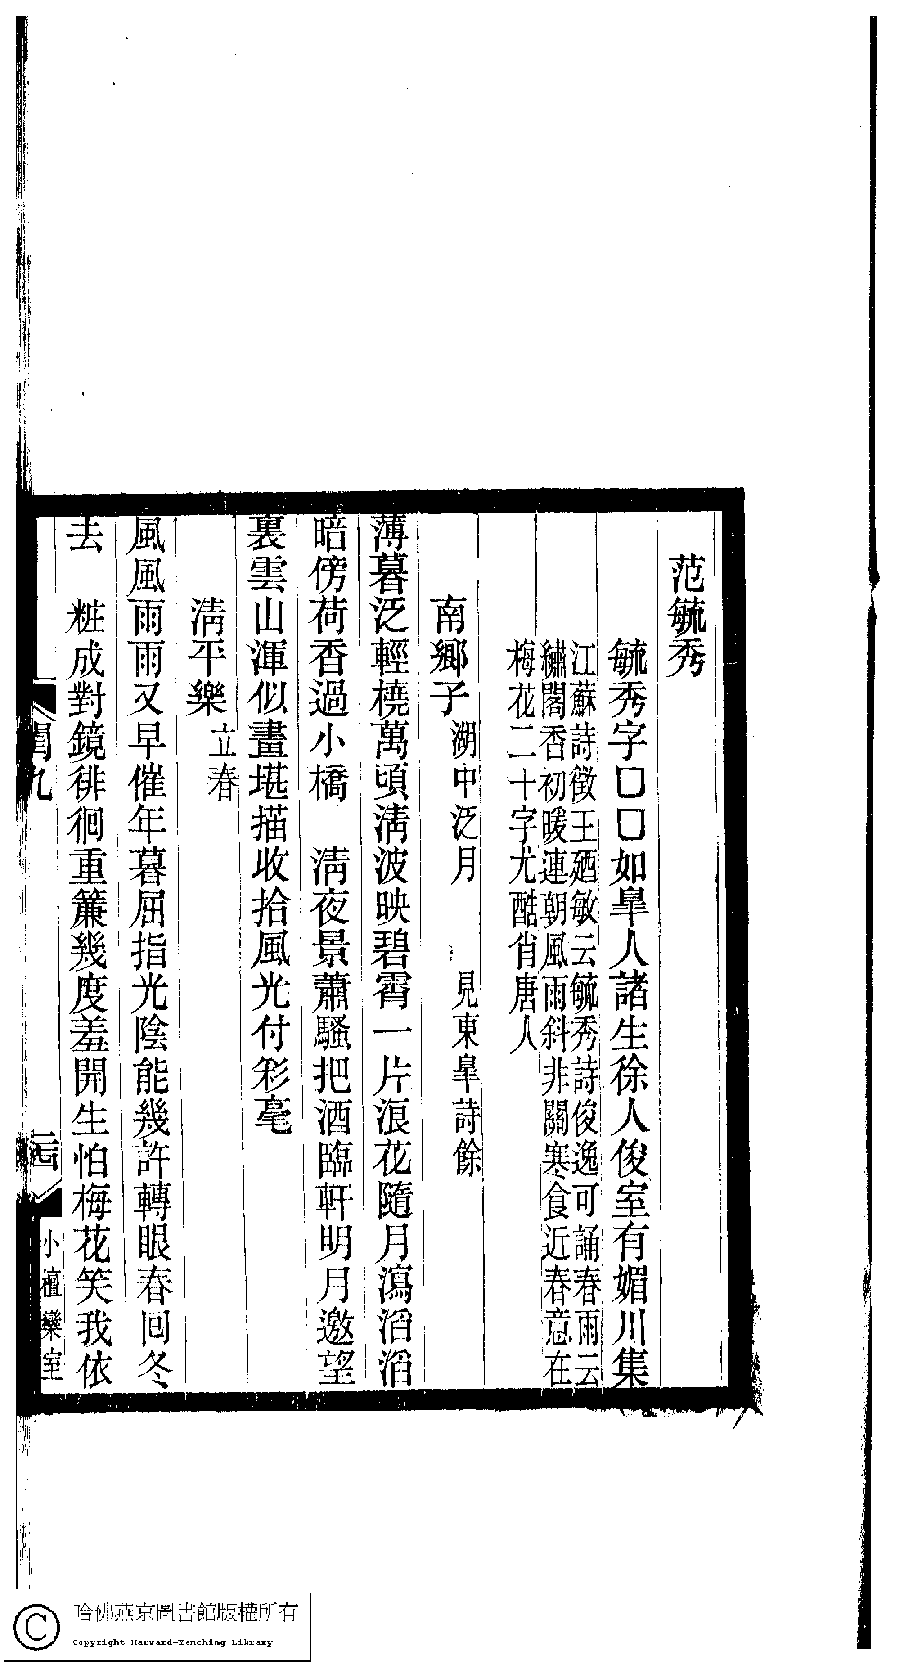 范毓秀
毓秀字囗囗如皋人諸生徐人俊室有媚川集
江蘇詩徵王廼敏云毓秀詩俊逸可誦春雨云
繡閣香初暖連朝風雨斜非關寒食近春意在
梅花二十字尤酷肖唐人
南鄉子 湖中泛月 見東皋詩餘
薄暮泛輕橈萬頃淸波映碧霄一片浪花隨月瀉滔滔
暗傍荷香過小橋 淸夜景蕭騷把酒臨軒明月邀望
裏雲山渾似畫堪描收拾風光付彩毫
淸平樂 立春
風風雨雨又早催年暮屈指光陰能幾許轉眼春回冬
去 粧成對鏡徘徊重簾幾度羞開生怕梅花笑我依
閨九
小檀欒室
哈佛燕京圖書館版權所有
Copyright Harvard-Yenching Library